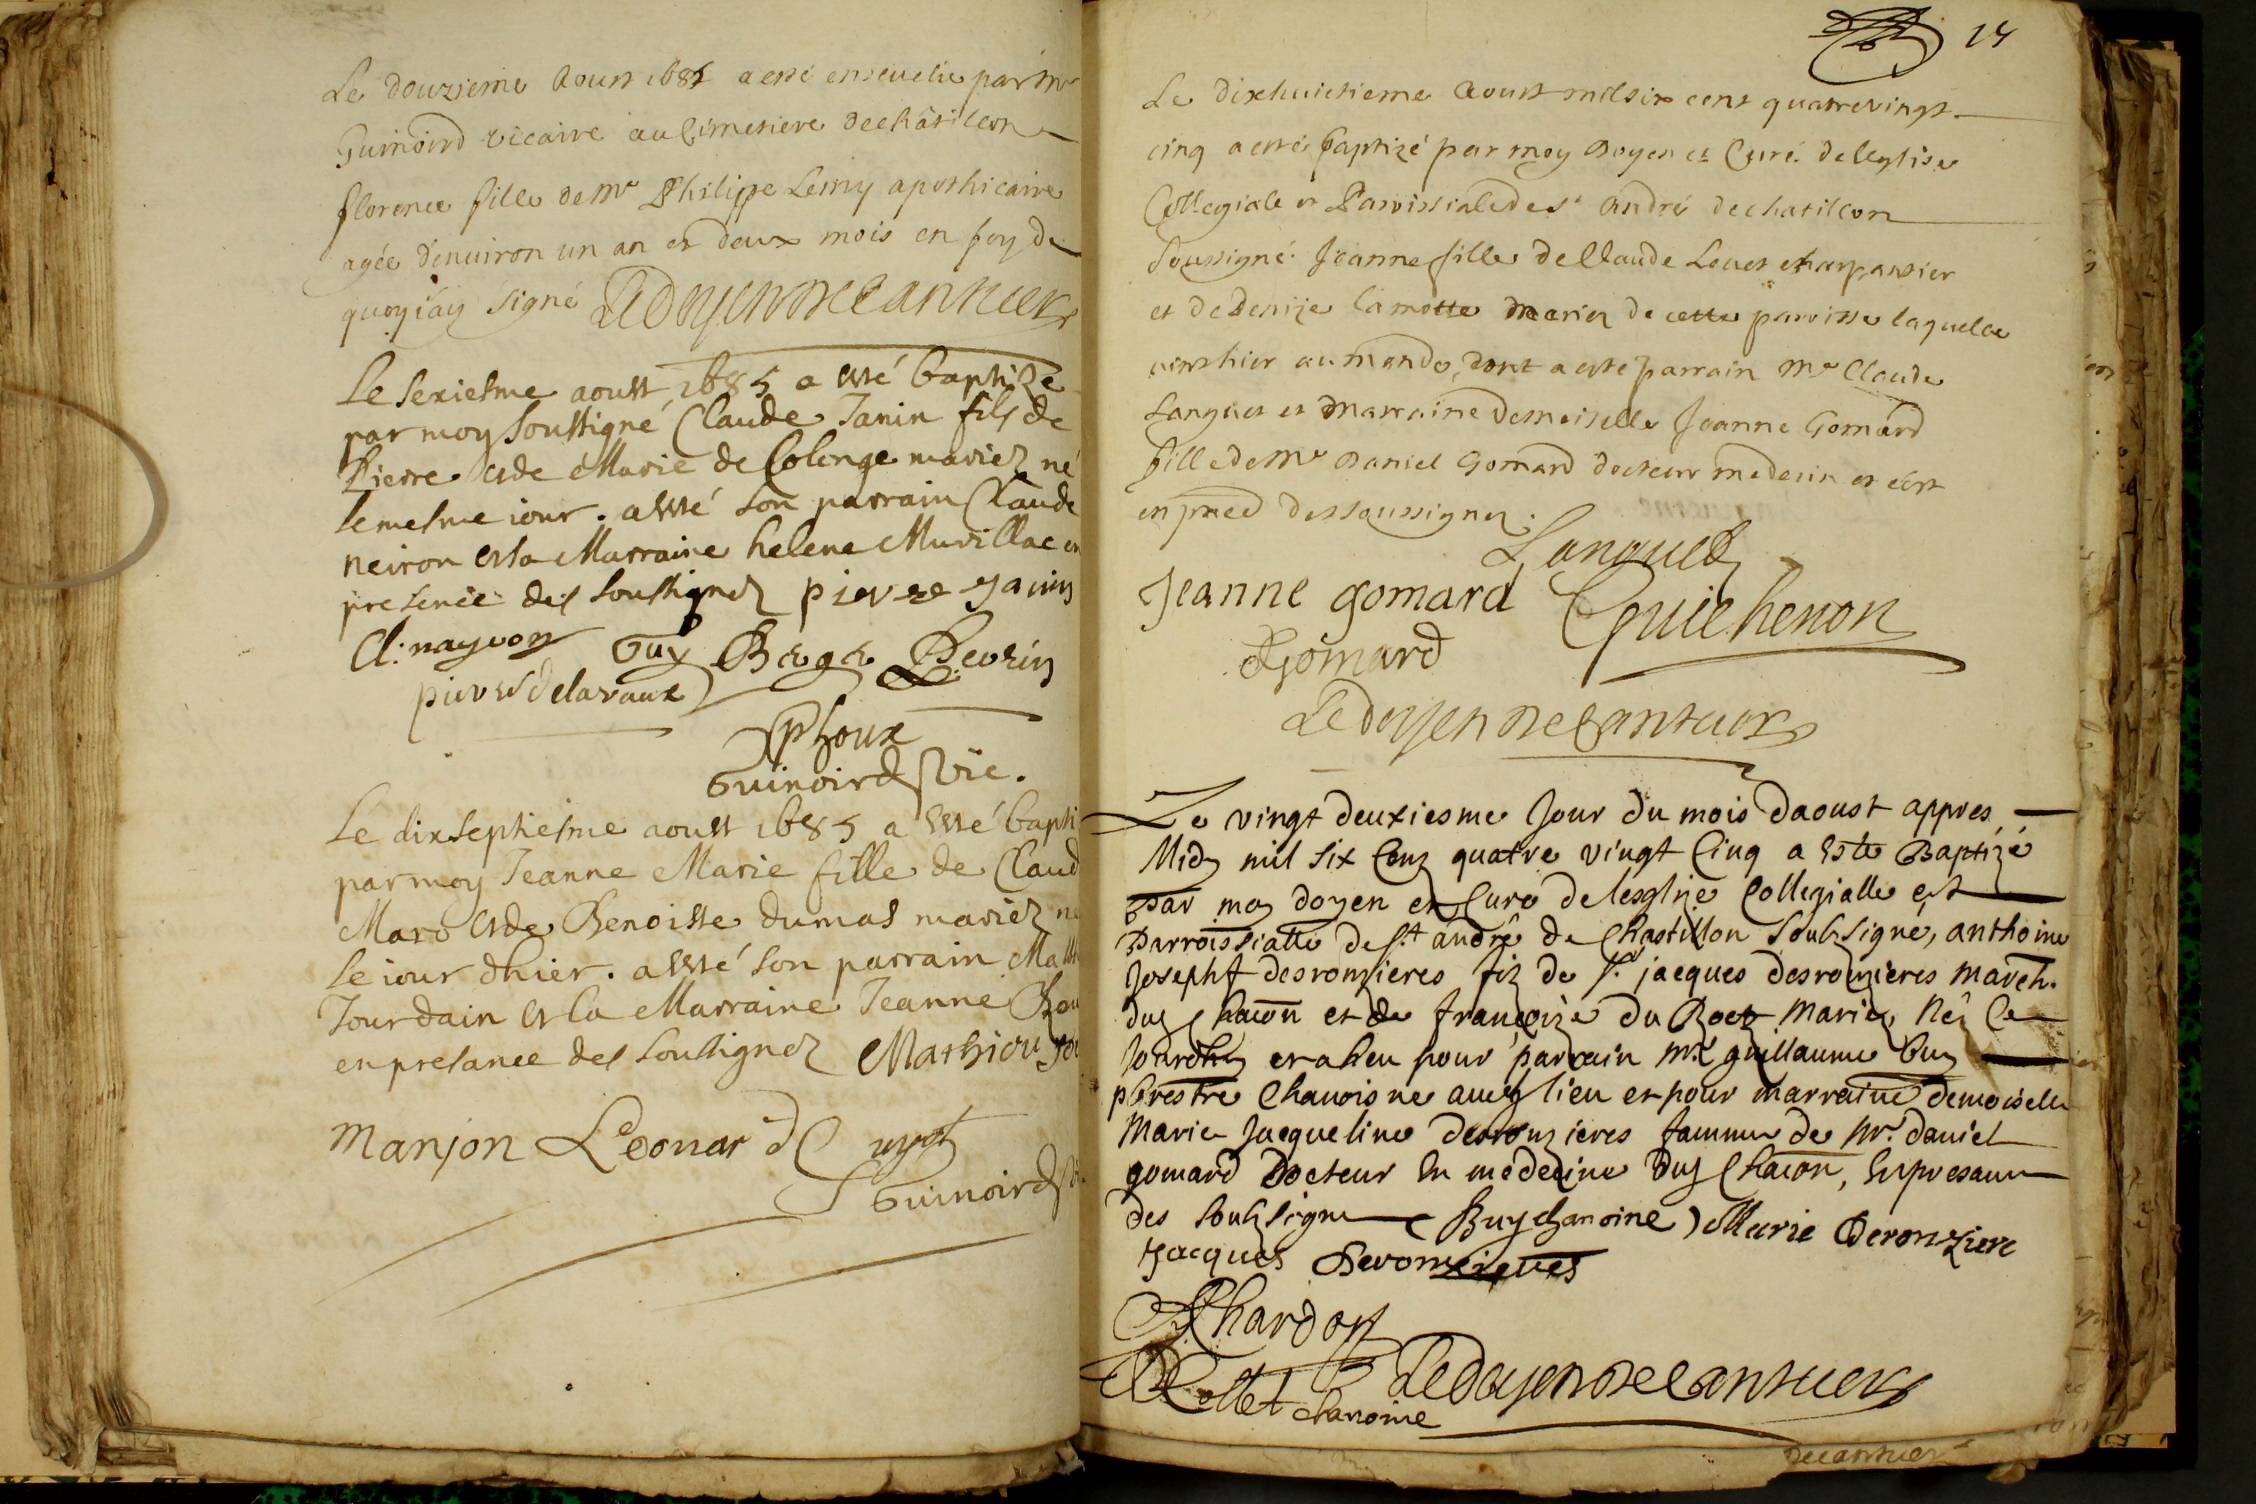 Le douzieme Aoust 1685 a esté ensevelie par Mr
Guinoird vicaire au Cimetiere de châtillon
florence fille de Mr Philippe Lemy apothicaire
agée d'environ un an et deux mois en foy de
quoy iay signé Le doyen De Cantuers
Le sexiesme aoust 1685 a esté baptizé
par moy soussigné Claude Janin fils de
Pierre et de Marie de Colonge mariez né
le mesme iour. a esté son parrain Claude
neiron et la Marraine helene Muvillac en
presence des soussignez pierre janin
Cl. nayron Guy Bege Perrin
pierre delavaux
Guinoird vic.
Le dixseptiesme aoust 1685 a esté bapti
par moy Jeanne Marie fille de Claud
Maro et de Benoiste dumas mariez n
le iour d'hier. a esté son parrain Mathi
Jourdain et la Marraine Jeanne
en presance des soussignez Mathieu Jou
Manjon Leonard
Guinoird
14
Le dixhuictieme Aoust mil six cent quatrevingt
cinq a esté baptizé par moy Doyen et Curé de leglise
Collegiale et Parroissiale de st André de chatillon
soussigné Jeanne fille de Claude Louet charpantier
et de Denize Lamotte Mariez de cette parroisse laquelle
vint hier au monde, dont a esté parrain Mr Claude
Languet et marraine demoiselle Jeanne Gomard
fille de Mr Daniel Gomard docteur medecin et c'est
en pnce des soussignez.
Languet
Jeanne gomard Guichenon
D Gomard
Le doyen De Cantuers
Le vingt deuxiesme Jour du mois daoust appres
Midy mil six Cens quatre vingt Cinq a este Baptizé
Par moy doyen et Curé de lesglize Collegialle et
Parroissialle de st. andré de Chastillon soubsigné, anthoine
Josepht desronzieres filz de sr. jacques desronzieres march.
duy Chaton et de françoize du Roct Mariez, Né Ce
Jourdhuy et a heu pour parrain Mre guillaume buy
pbrestre Chanoisne audt lieu et pour marraine demoiselle
Marie Jacqueline desronzieres famme de Mr. daniel
gomard Docteur En médecine duy Chaton, En presance
des soubsigne Buy chanoine Marie Deronziere
Jacques Deronzieres
Chardon
Collet chanoine Le doyen De Cantuers